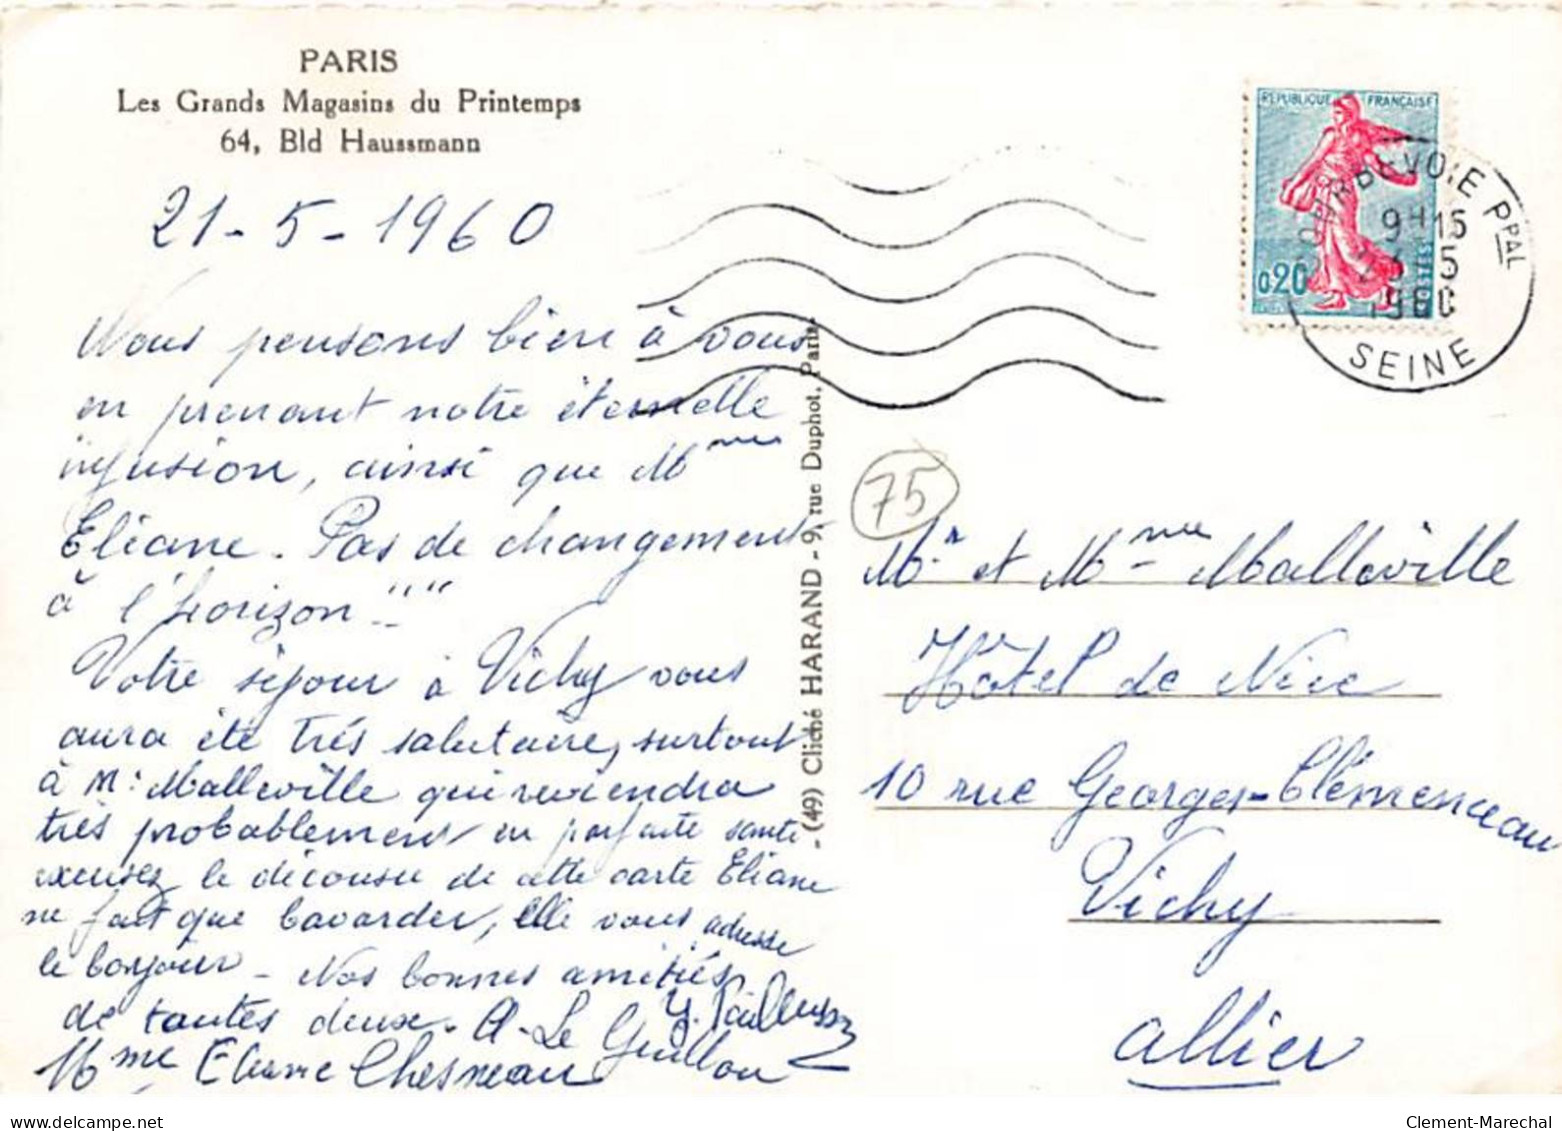 PARIS
Les Grands Magasins du Printemps
64, Bld Haussmann
21-5-1960
Nous pensons bien à vous
en prenant notre éternelle
infusion, ainsi que Mme
Eliane. Pas de changement
à l'horizon..""
Votre séjour à Vichy vous
aura été très salutaire, surtout
à Mr Malleville qui reviendra
très probablement en parfaite santé
excusez le décousu de cette carte Eliane
ne fait que bavarder, elle vous adresse
le bonjour - Nos bonnes amitiés
de toutes deux. A. Le Guillou
Mme Eliane Chesneau
- (49) Cliché HARAND - 9, rue Duphot, Paris.
REPUBLIQUE FRANÇAISE
0,20
POSTES
COURBEVOIE PPAL
9H15
5
1960
SEINE
75
Mr et Mme Malleville
Hôtel de Nice
10 rue Georges-Clémenceau
Vichy
Allier
Clement-Marechal